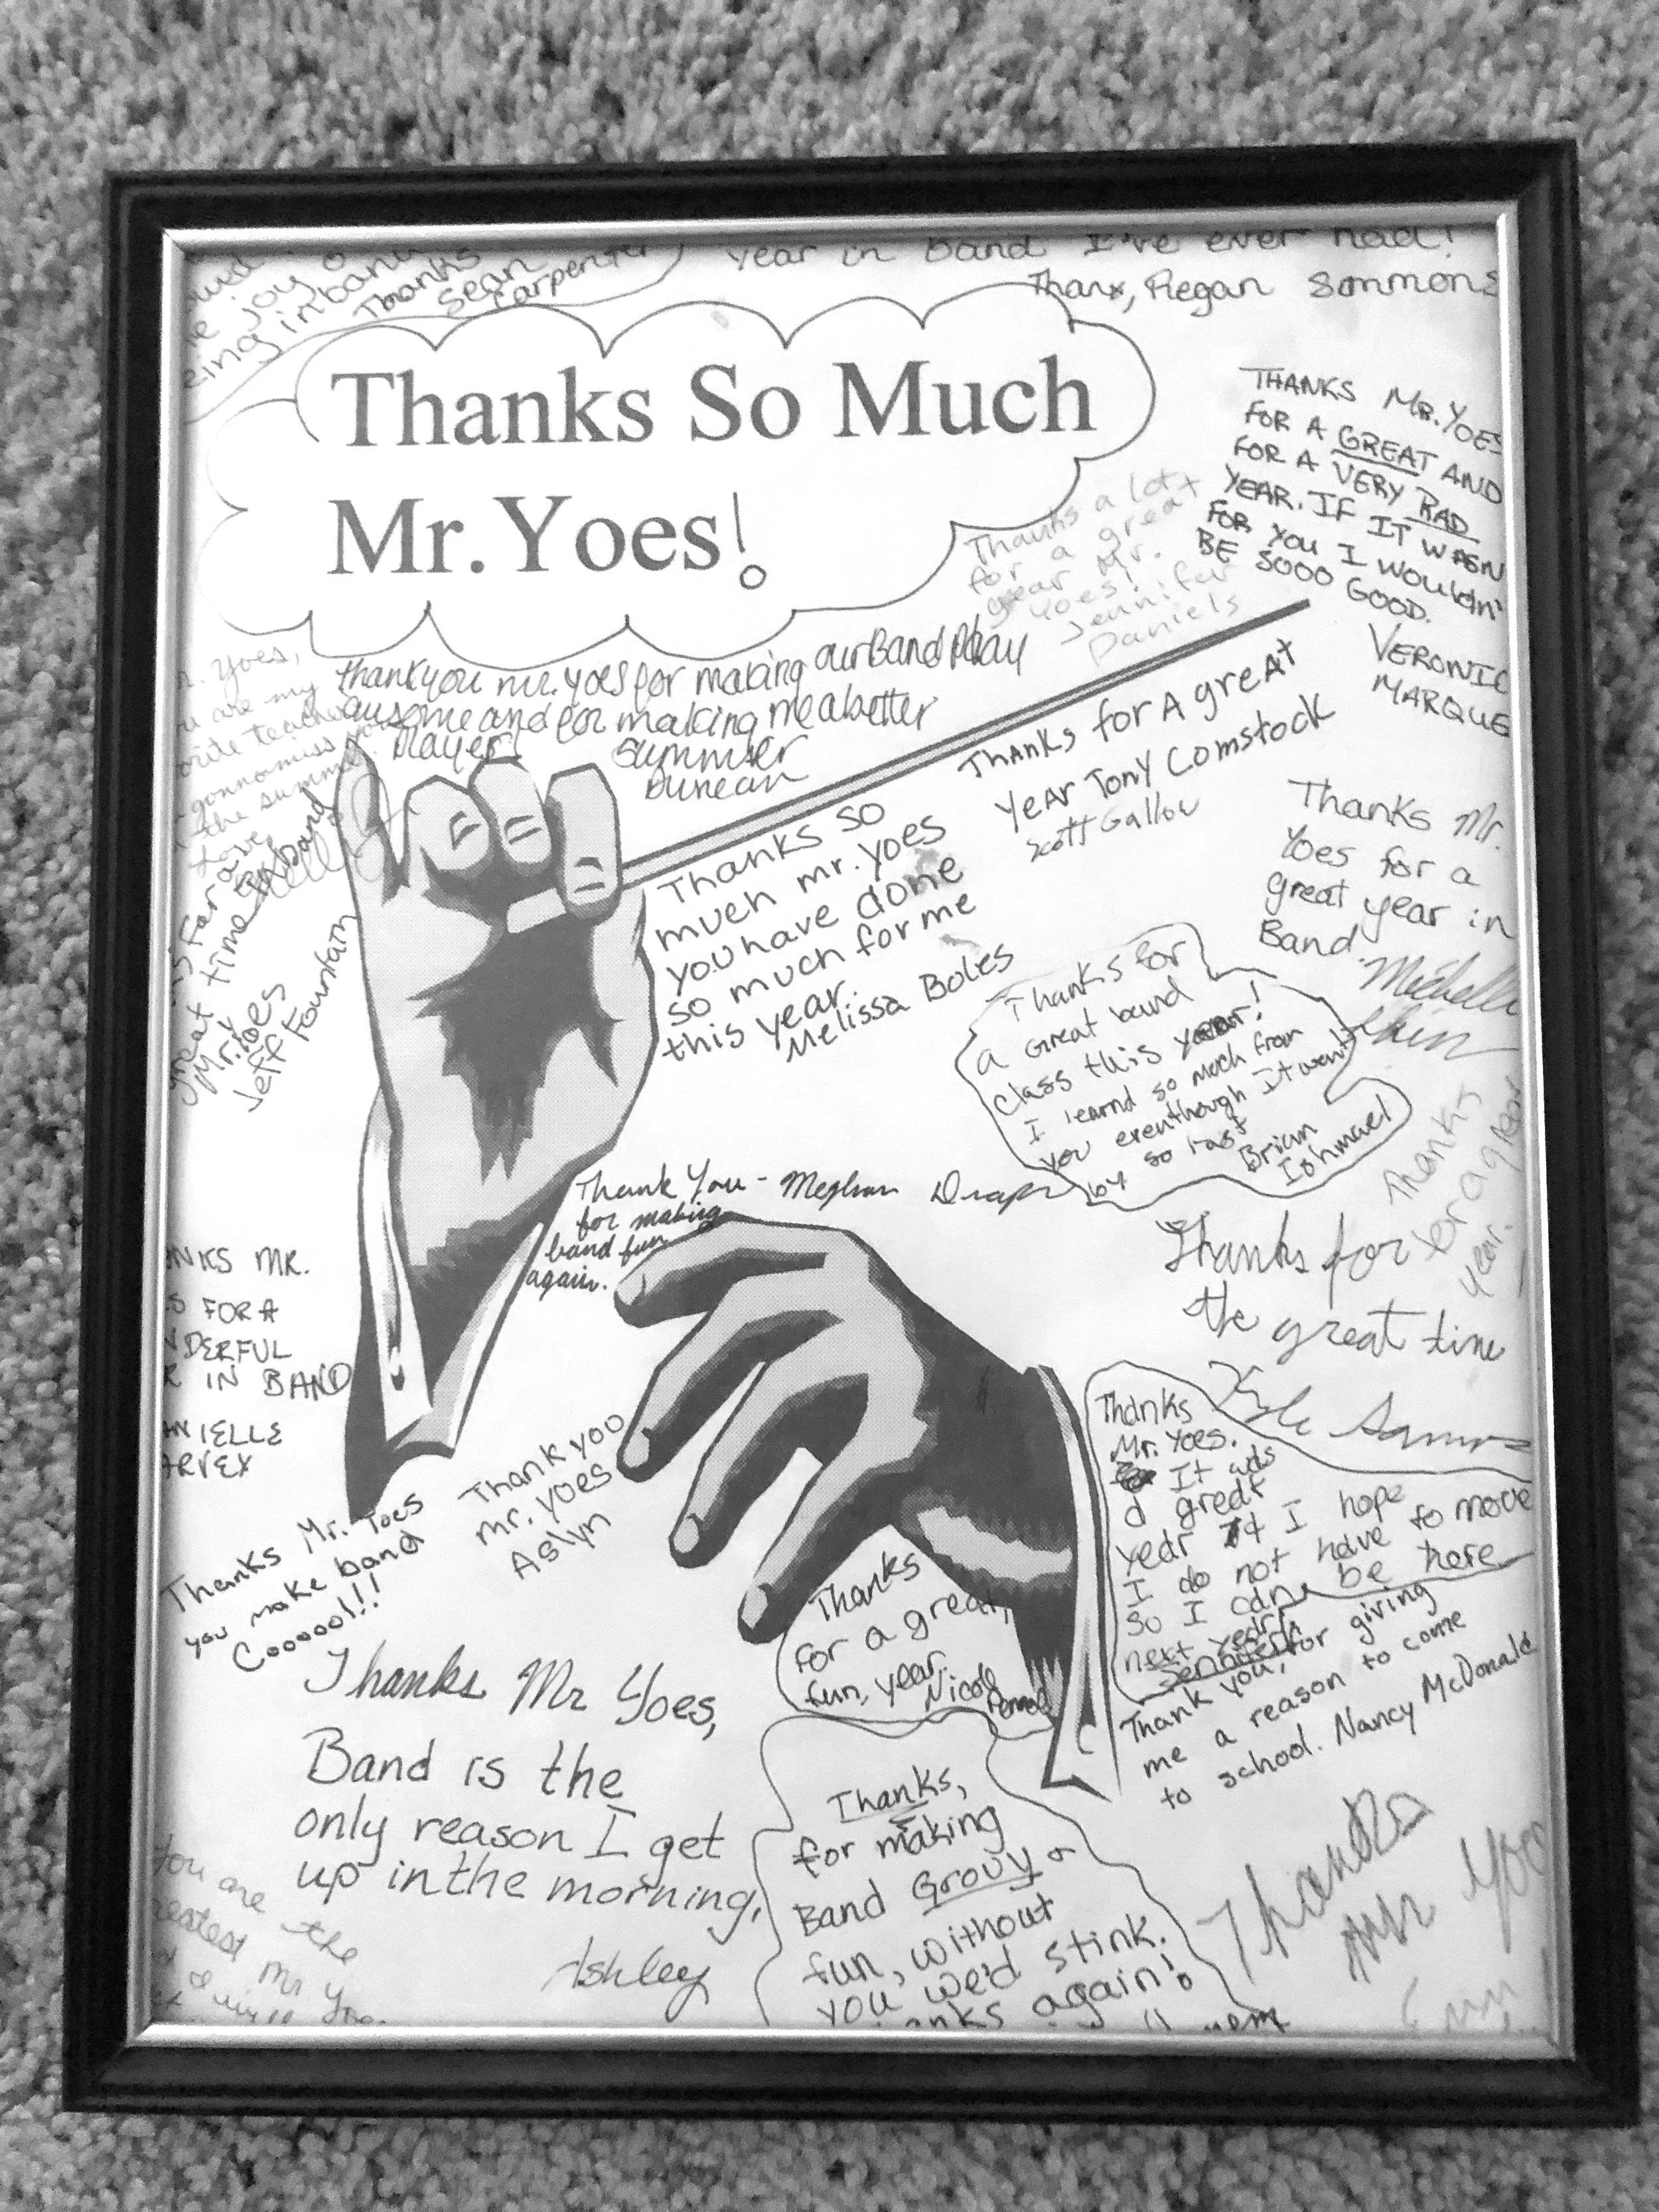 joy
in band
Thanks
Sean
Carpenter
Year in band I've ever had!
Thanx, Regan Simmons
Thanks So Much
Mr. Yoes!
THANKS MR. YOES
FOR A GREAT AND
FOR A VERY RAD
YEAR. IF IT WASN
FOR YOU I WOULDN'
BE SOOO GOOD.
VERONIC
MARQUE
Thanks a lot
for a great
year Mr.
Yoes!
Jennifer
Daniels
thank you mr. yoes for making our Band Play
awsome and for making me a better
player!
Summer
Duncan
Yoes,
are my
teacher
gonna miss you
the summer
Love,
Thanks for A great
Year Tony Comstock
Scott Gallou
Thanks so
much mr. yoes
you have done
so much for me
this year.
Melissa Boles
Thanks Mr.
Yoes for a
great year in
Band.
Michelle
For a
great time
Mr. Yoes
Jeff Fountain
Thanks for
a Great band
class this year!
I learnd so much from
you eventhough It went
by so fast
Brian
Ishmael
Thanks
for a great
year.
Thank You - Meghan Draper
for making
band fun
again.
Thanks for
the great time
Kyle
NKS MR.
S FOR A
NDERFUL
R IN BAND
ANIELLE
ARVEX
Thanks
Mr. Yoes.
It was
a great
year I hope
I do not have to move
So I can be here
next year
Jennifer
Thank you
mr. yoes
Aslyn
Thanks Mr. Yoes
you make band
Cooooo!!!
Thanks
for a great,
fun, year
Nicole
Thank you, for giving
me a reason to come
to school. Nancy McDonald
Thanks Mr Yoes,
Band is the
only reason I get
up in the morning,
Ashley
Thanks,
for making
Band Grovy &
fun, without
you we'd stink.
anks again!
Thanks
Mr Yoes
You are the
eatest Mr. Yoes